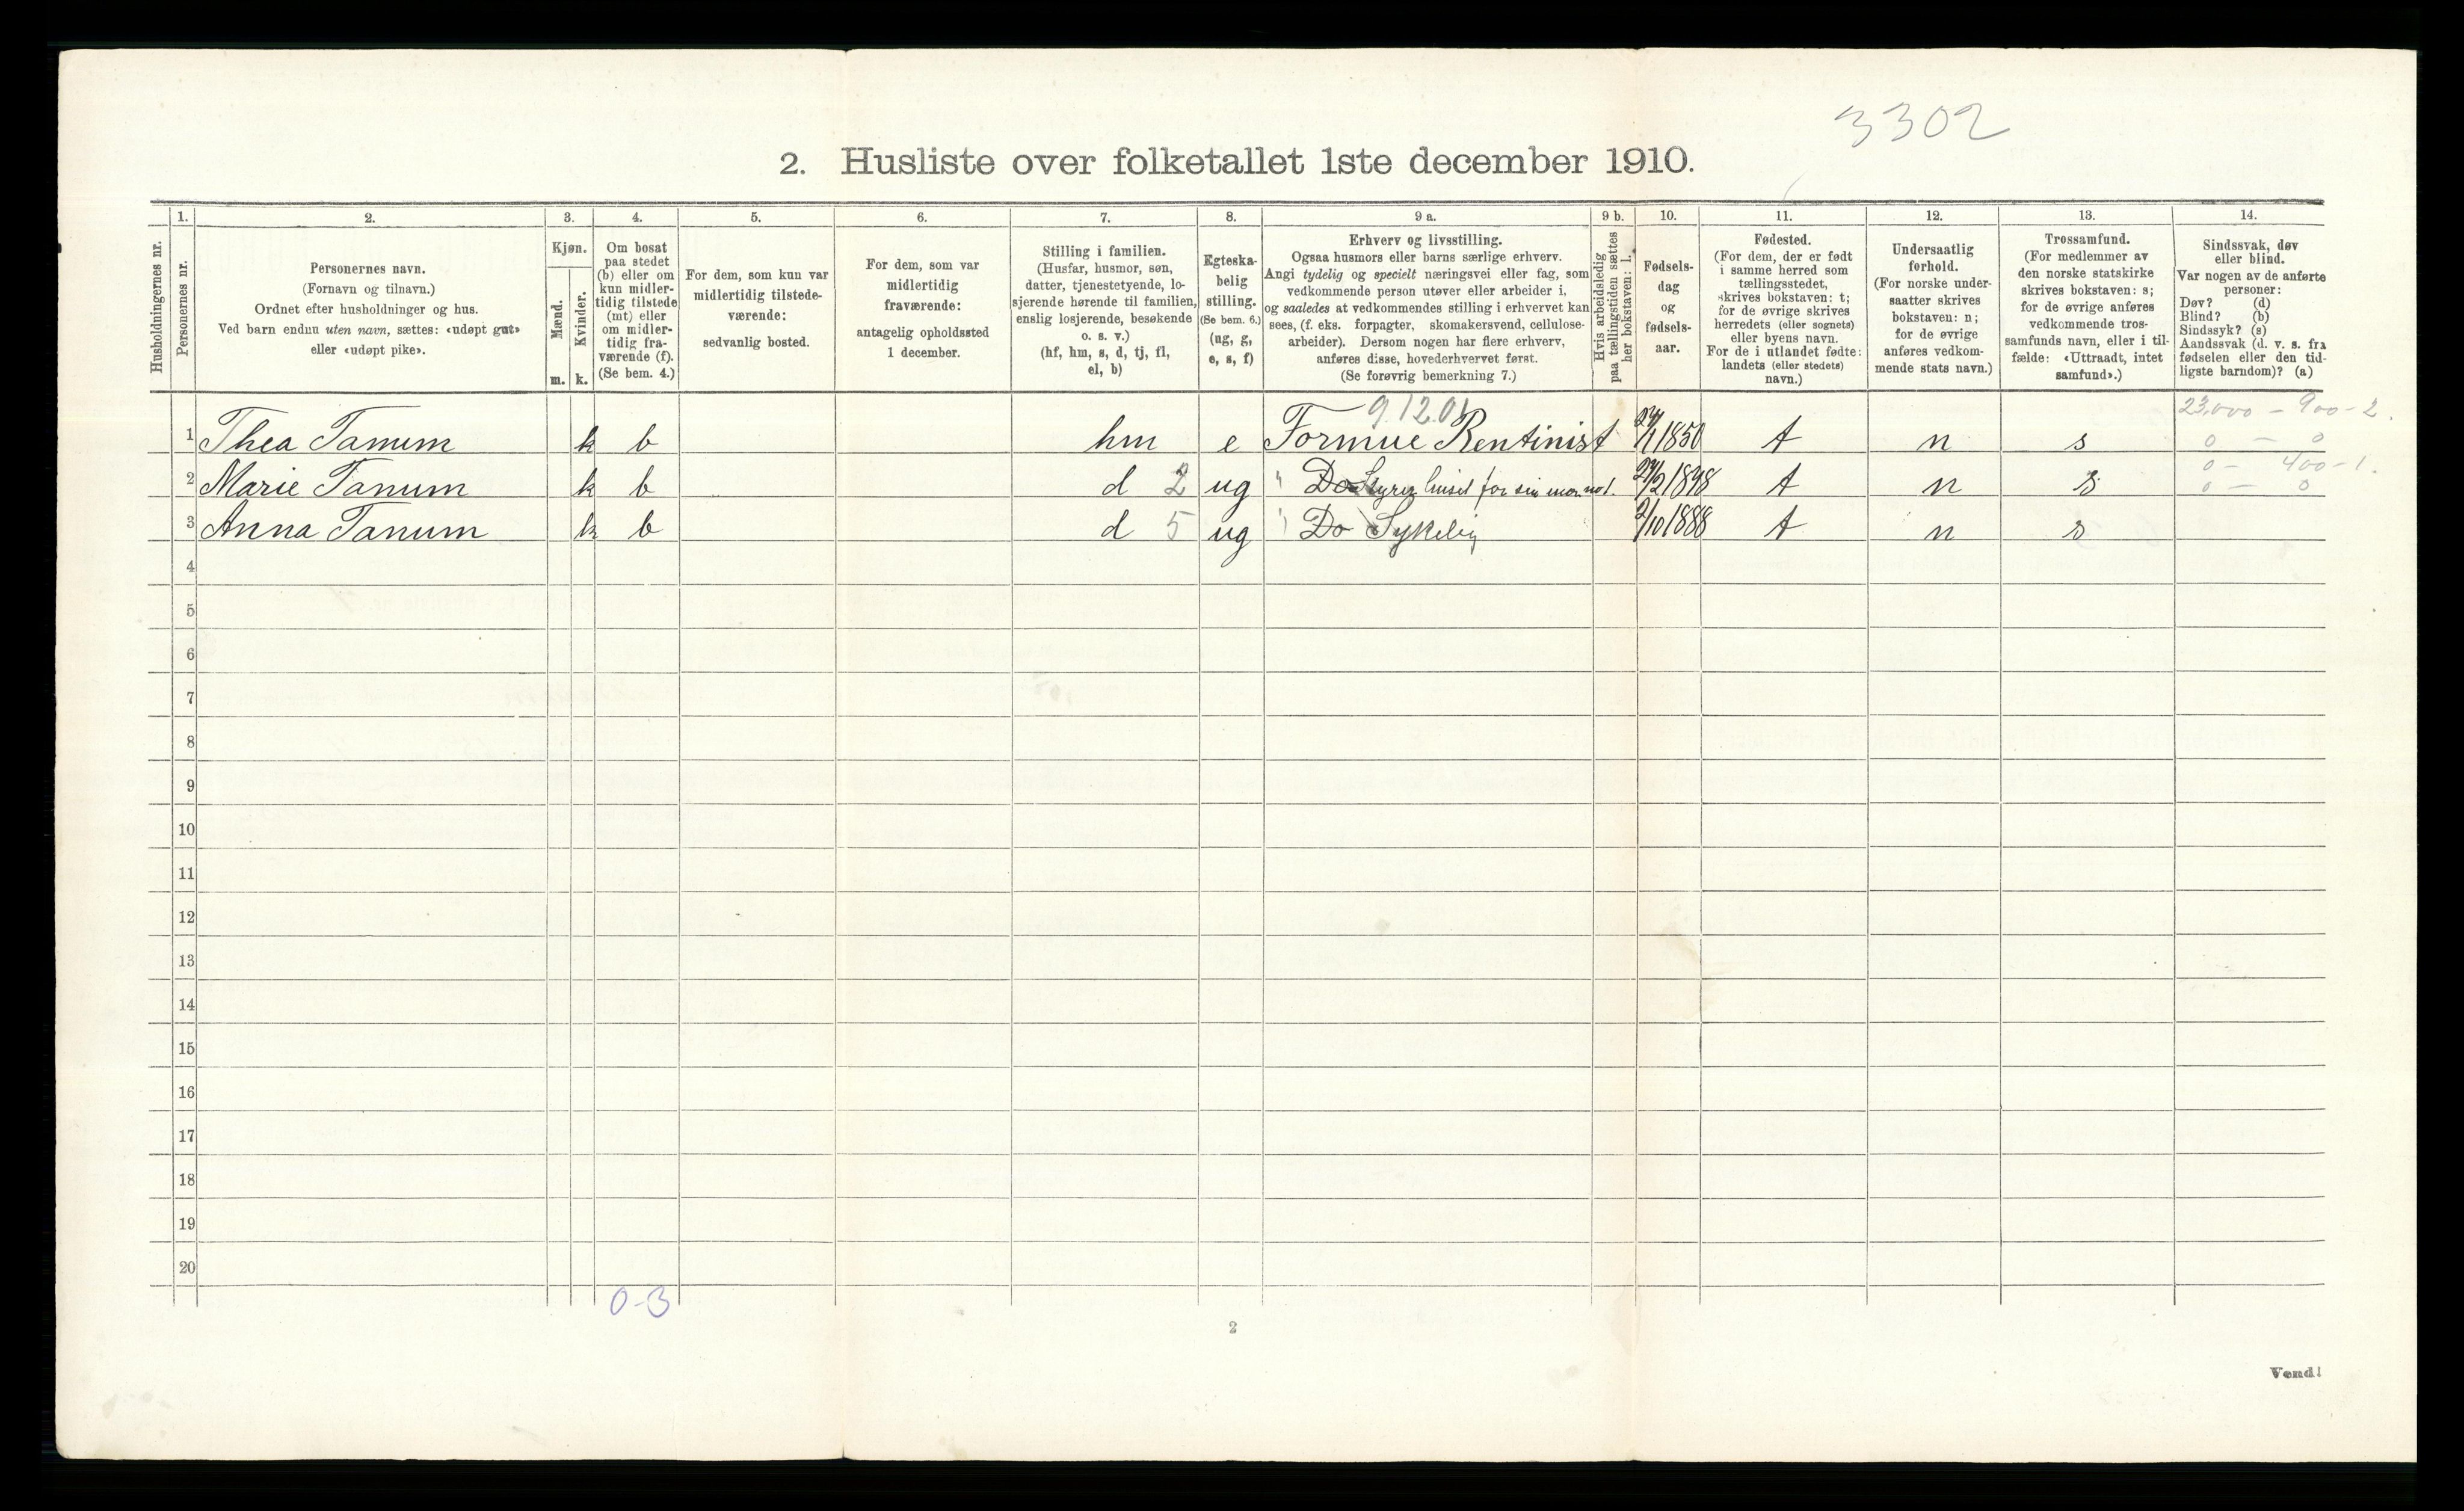 3302
2. Husliste over folketallet 1ste december 1910.
Husholdningernes nr.
1.
Personernes nr.
2.
Personernes navn.
(Fornavn og tilnavn.)
Ordnet efter husholdninger og hus.
Ved barn endnu uten navn, sættes: «udøpt gut»
eller «udøpt pike».
3.
Kjøn.
Mænd.
m.
Kvinder.
k.
4.
Om bosat
paa stedet
(b) eller om
kun midler-
tidig tilstede
(mt) eller
om midler-
tidig fra-
værende (f).
(Se bem. 4.)
5.
For dem, som kun var
midlertidig tilstede-
værende:
sedvanlig bosted.
6.
For dem, som var
midlertidig
fraværende:
antagelig opholdssted
1 december.
7.
Stilling i familien.
(Husfar, husmor, søn,
datter, tjenestetyende, lo-
sjerende hørende til familien,
enslig losjerende, besøkende
o. s. v.)
(hf, hm, s, d, tj, fl,
el, b)
8.
Egteska-
belig
stilling.
(Se bem. 6.)
(ug, g,
e, s, f)
9 a.
Erhverv og livsstilling.
Ogsaa husmors eller barns særlige erhverv.
Angi tydelig og specielt næringsvei eller fag, som
vedkommende person utøver eller arbeider i,
og saaledes at vedkommendes stilling i erhvervet kan
sees, (f. eks. forpagter, skomakersvend, cellulose-
arbeider). Dersom nogen har flere erhverv,
anføres disse, hovederhvervet først.
(Se forøvrig bemerkning 7.)
9 b.
Hvis arbeidsledig
paa tællingstiden sættes
her bokstaven: l.
10.
Fødsels-
dag
og
fødsels-
aar.
11.
Fødested.
(For dem, der er født
i samme herred som
tællingsstedet,
skrives bokstaven: t;
for de øvrige skrives
herredets (eller sognets)
eller byens navn.
For de i utlandet fødte:
landets (eller stedets)
navn.)
12.
Undersaatlig
forhold.
(For norske under-
saatter skrives
bokstaven: n;
for de øvrige
anføres vedkom-
mende stats navn.)
13.
Trossamfund.
(For medlemmer av
den norske statskirke
skrives bokstaven: s;
for de øvrige anføres
vedkommende tros-
samfunds navn, eller i til-
fælde: «Uttraadt, intet
samfund».)
14.
Sindssvak, døv
eller blind.
Var nogen av de anførte
personer:
Døv? (d)
Blind? (b)
Sindssyk? (s)
Aandssvak (d. v. s. fra
fødselen eller den tid-
ligste barndom)? (a)
9.12.01 23,000 - 900-2.
1 Thea Tanum k b hm e Formue Rentinist 1850 t n s 0 - 0
0 - 400-1.
2 Marie Tanum k b d 2 ug " Do Styrer huset for sin mor t n s 0 - 0
3 Anna Tanum k b d 5 ug " Do Sykelig 2/10 1888 t n s
4
5
6
7
8
9
10
11
12
13
14
15
16
17
18
19
20
0-3
2
Vend!